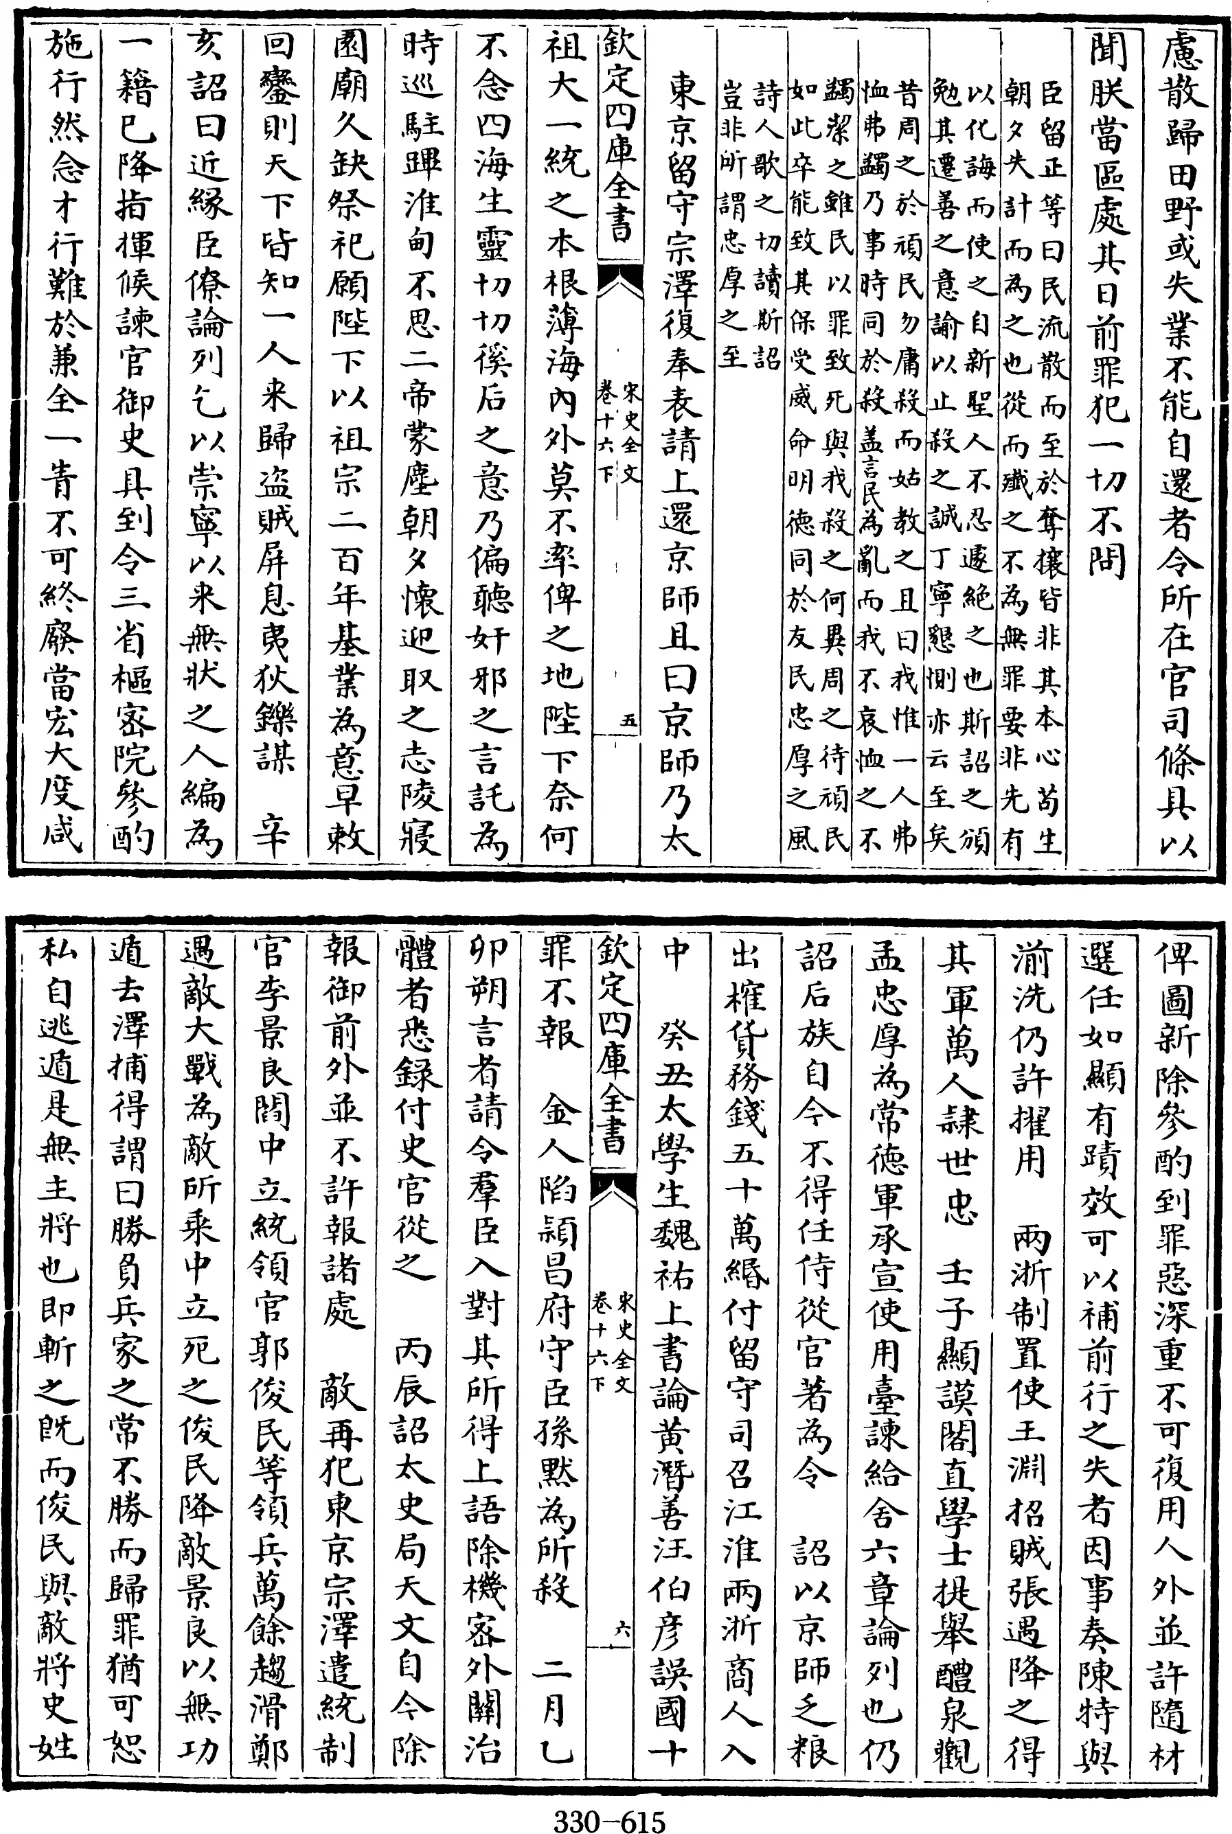 慮散歸田野或失業不能自還者令所在官司條具以
聞朕當區處其日前罪犯一切不問
臣留正等曰民流散而至於奪攘皆非其本心苟生
朝夕失計而為之也從而殲之不為無罪要非先有
以化誨而使之自新聖人不忍遽絶之也斯詔之頒
勉其遷善之意諭以止殺之誠丁寧懇惻亦云至矣
昔周之於頑民勿庸殺而姑教之且曰我惟一人弗
恤弗蠲乃事時同於殺盖言民為亂而我不哀恤之不
蠲潔之雖民以罪致死與我殺之何異周之待頑民
如此卒能致其保受威命明德同於友民忠厚之風
詩人歌之切讀斯詔
豈非所謂忠厚之至
東京留守宗澤復奉表請上還京師且曰京師乃太
欽定四庫全書
宋史全文
卷十六下
五
祖大一統之本根薄海內外莫不率俾之地陛下奈何
不念四海生靈切切徯后之意乃偏聽奸邪之言託為
時巡駐蹕淮甸不思二帝蒙塵朝夕懷迎取之志陵寢
園廟久缺祭祀願陛下以祖宗二百年基業為意早敕
回鑾則天下皆知一人来歸盜賊屏息夷狄鑠謀　辛
亥詔曰近緣臣僚論列乞以崇寧以来無狀之人編為
一籍已降指揮候諫官御史具到令三省樞密院參酌
施行然念才行難於兼全一眚不可終廢當宏大度咸
俾圖新除參酌到罪惡深重不可復用人外並許隨材
選任如顯有蹟效可以補前行之失者因事奏陳特與
湔洗仍許擢用　兩浙制置使王淵招賊張遇降之得
其軍萬人隷世忠　壬子顯謨閣直學士提舉醴泉觀
孟忠厚為常德軍承宣使用臺諫給舍六章論列也仍
詔后族自今不得任侍從官著為令　詔以京師乏粮
出榷貨務錢五十萬緡付留守司召江淮兩浙商人入
中　癸丑太學生魏祐上書論黃潛善汪伯彥誤國十
欽定四庫全書
宋史全文
卷十六下
六
罪不報　金人陷潁昌府守臣孫默為所殺　二月乙
卯朔言者請令羣臣入對其所得上語除機密外關治
體者悉録付史官從之　丙辰詔太史局天文自今除
報御前外並不許報諸處　敵再犯東京宗澤遣統制
官李景良閻中立統領官郭俊民等領兵萬餘趨滑鄭
遇敵大戰為敵所乘中立死之俊民降敵景良以無功
遁去澤捕得謂曰勝負兵家之常不勝而歸罪猶可恕
私自逃遁是無主將也即斬之既而俊民與敵將史姓
330-615